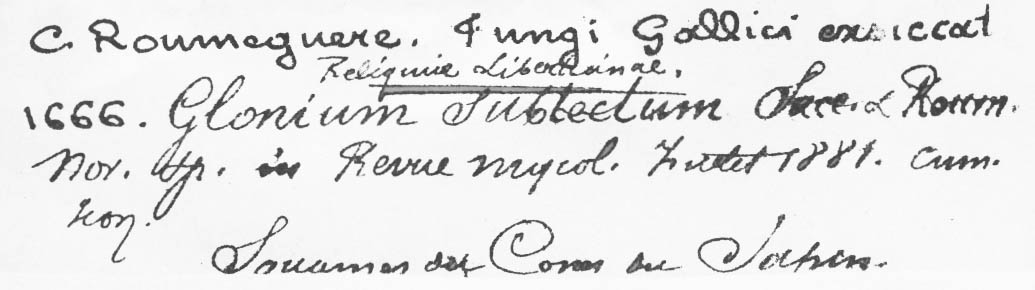 C. Roumeguere. Fungi Gallici exsiccat
Reliquiæ Libertianae.
1666. Glonium Subtectum Sacc. & Roum.
Nov. Sp. in Revue mycol. Juillet 1881. cum.
Icon.
Squames des Cones du Sapin.